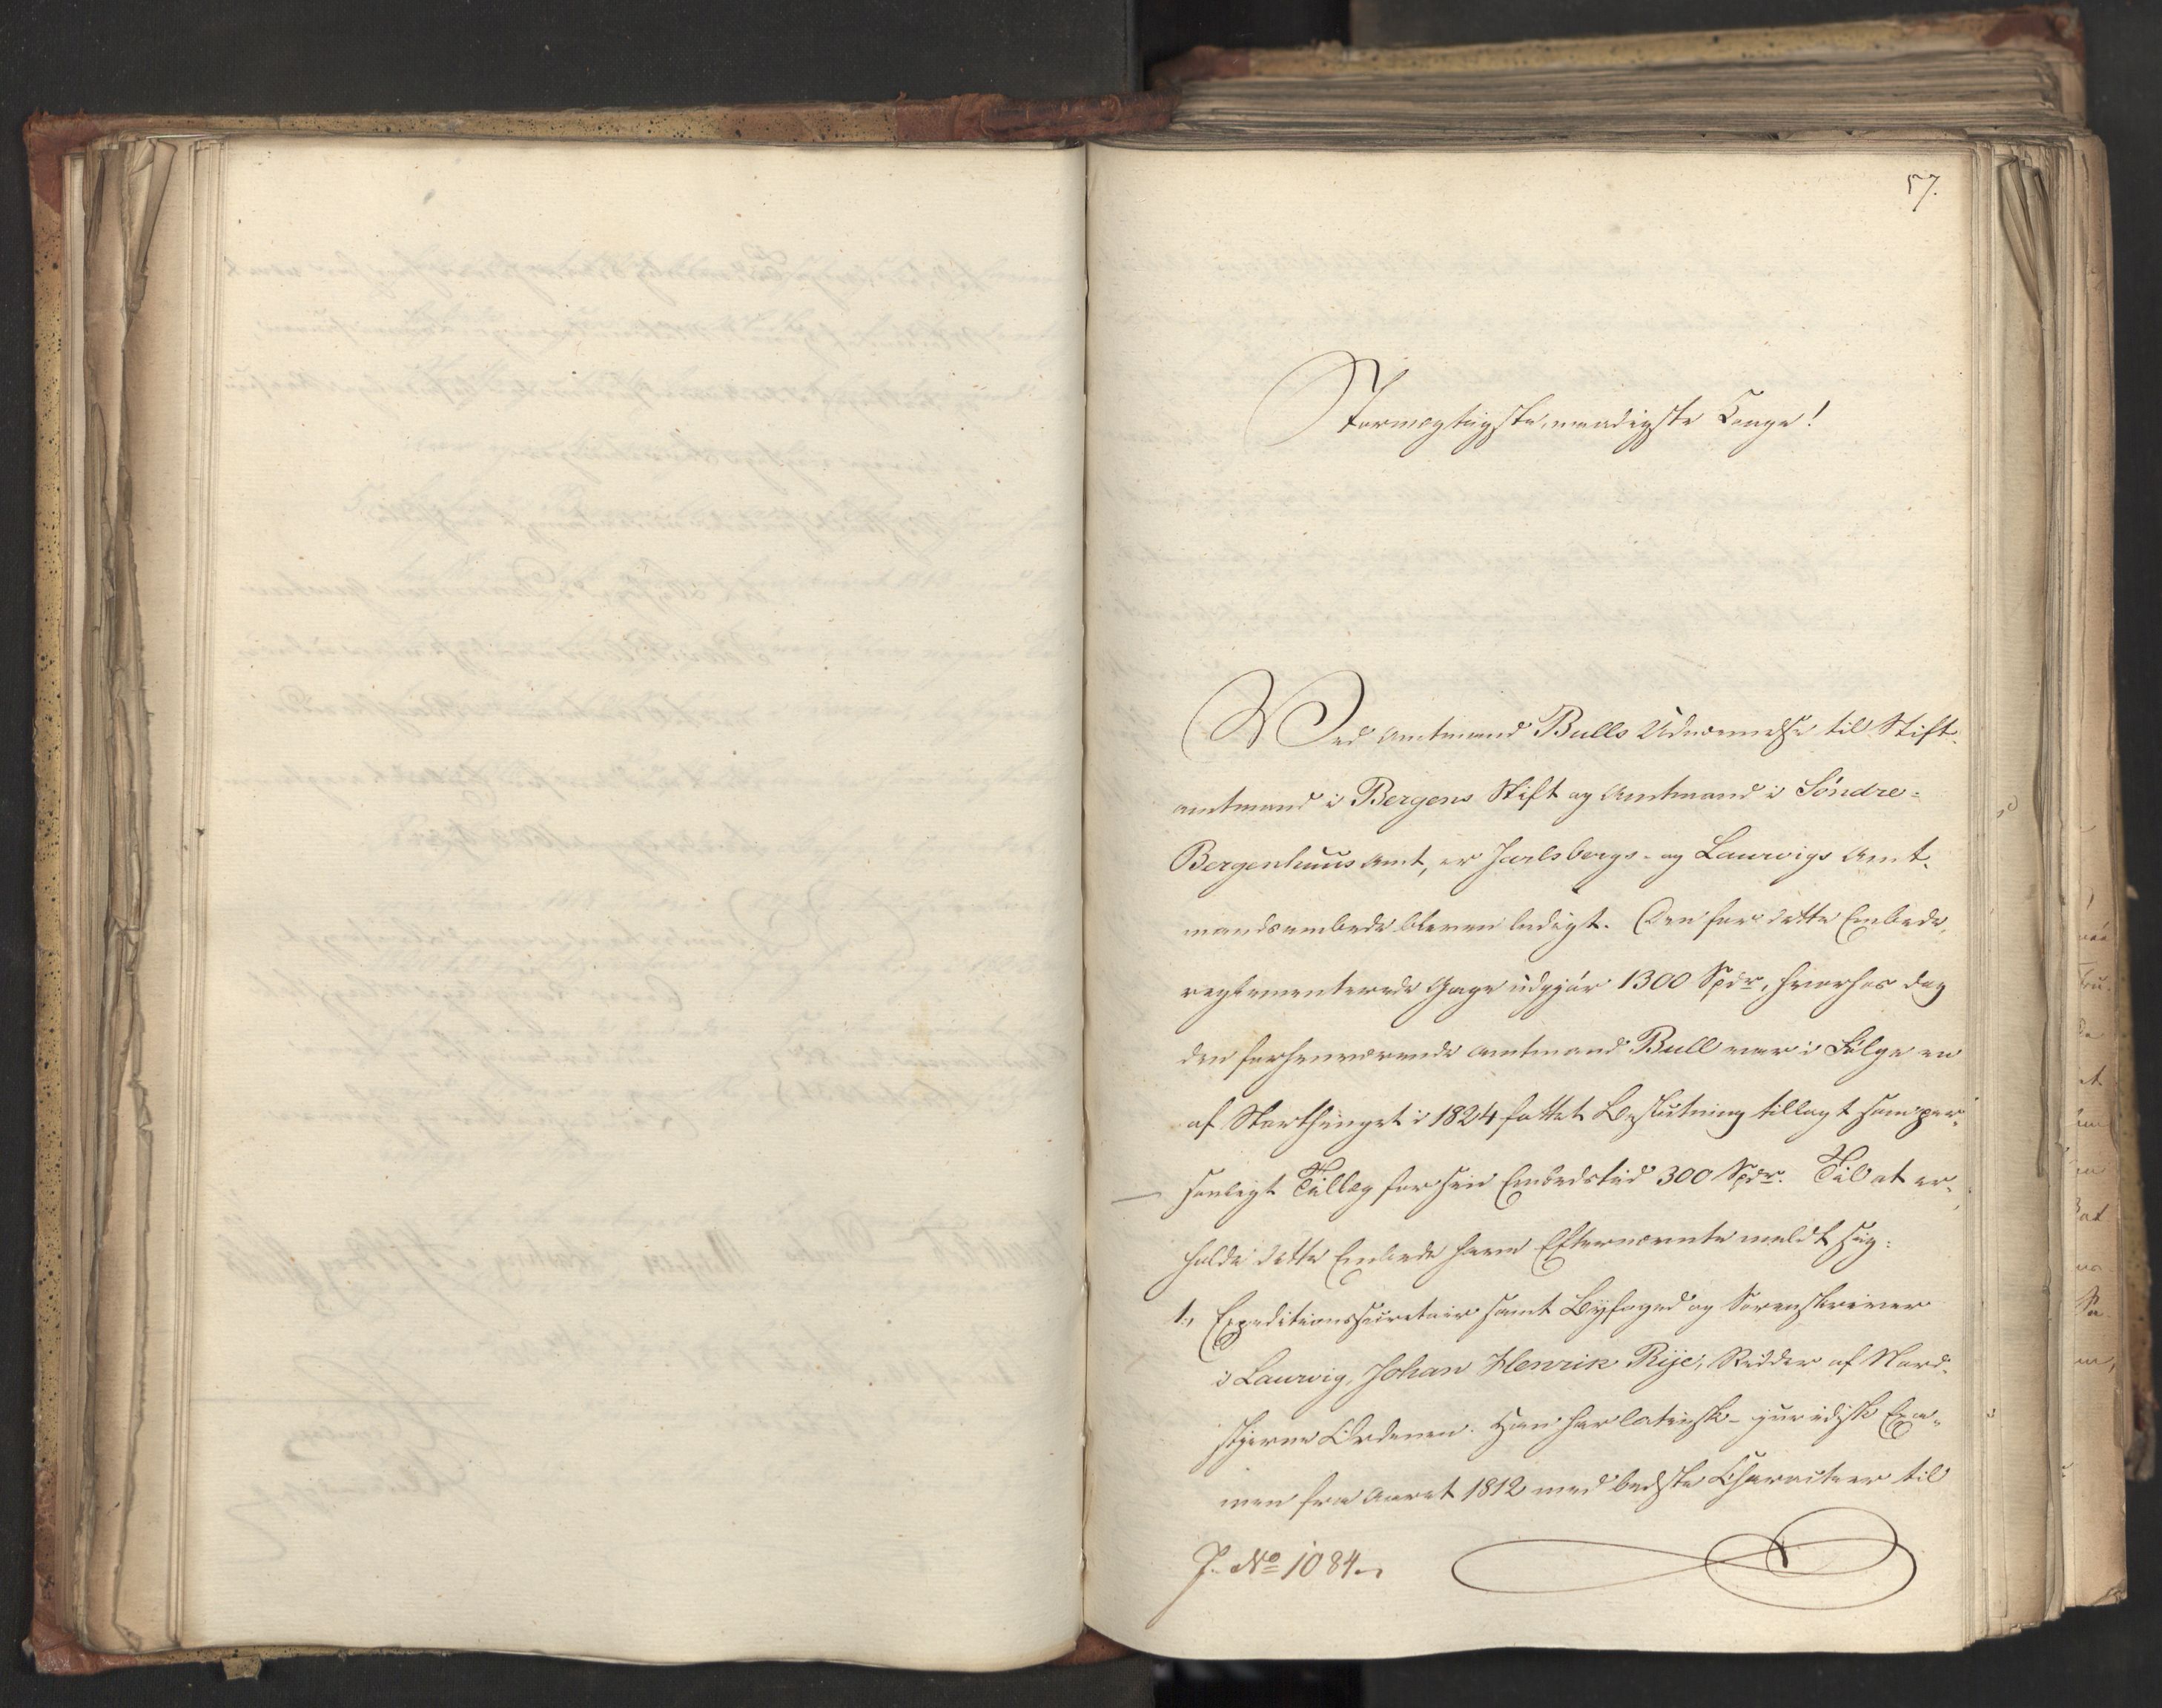 57.
Stormægtigste, naadigste Konge!
Ved Amtmand Bulls Udnævnelse til Stift-
amtmand i Bergens Stift og Amtmand i Söndre-
Bergenhuus Amt, er Jarlsbergs- og Laurvigs Amt-
mandsembede bleven ledigt. Den for dette Embede
reglementerede Gage udgjör 1300 Spdr, hvorhos dog
den forhenværende Amtmand Bull var i Fölge en
af Storthinget i 1824 fattet Beslutning tillagt som per-
sonligt Tillæg for sin Embedstid 300 Spdr. Til at er-
holde dette Embede have Efternævnte meldt sig:
1, Expeditionssecretair samt Byfoged og Sorenskriver
i Laurvig, Johan Henrik Rije, Ridder af Nord-
stjerne Ordenen. Han har latinsk-juridisk Exa-
men fra Aaret 1812 med bedste Characteer til
J. No 1084.